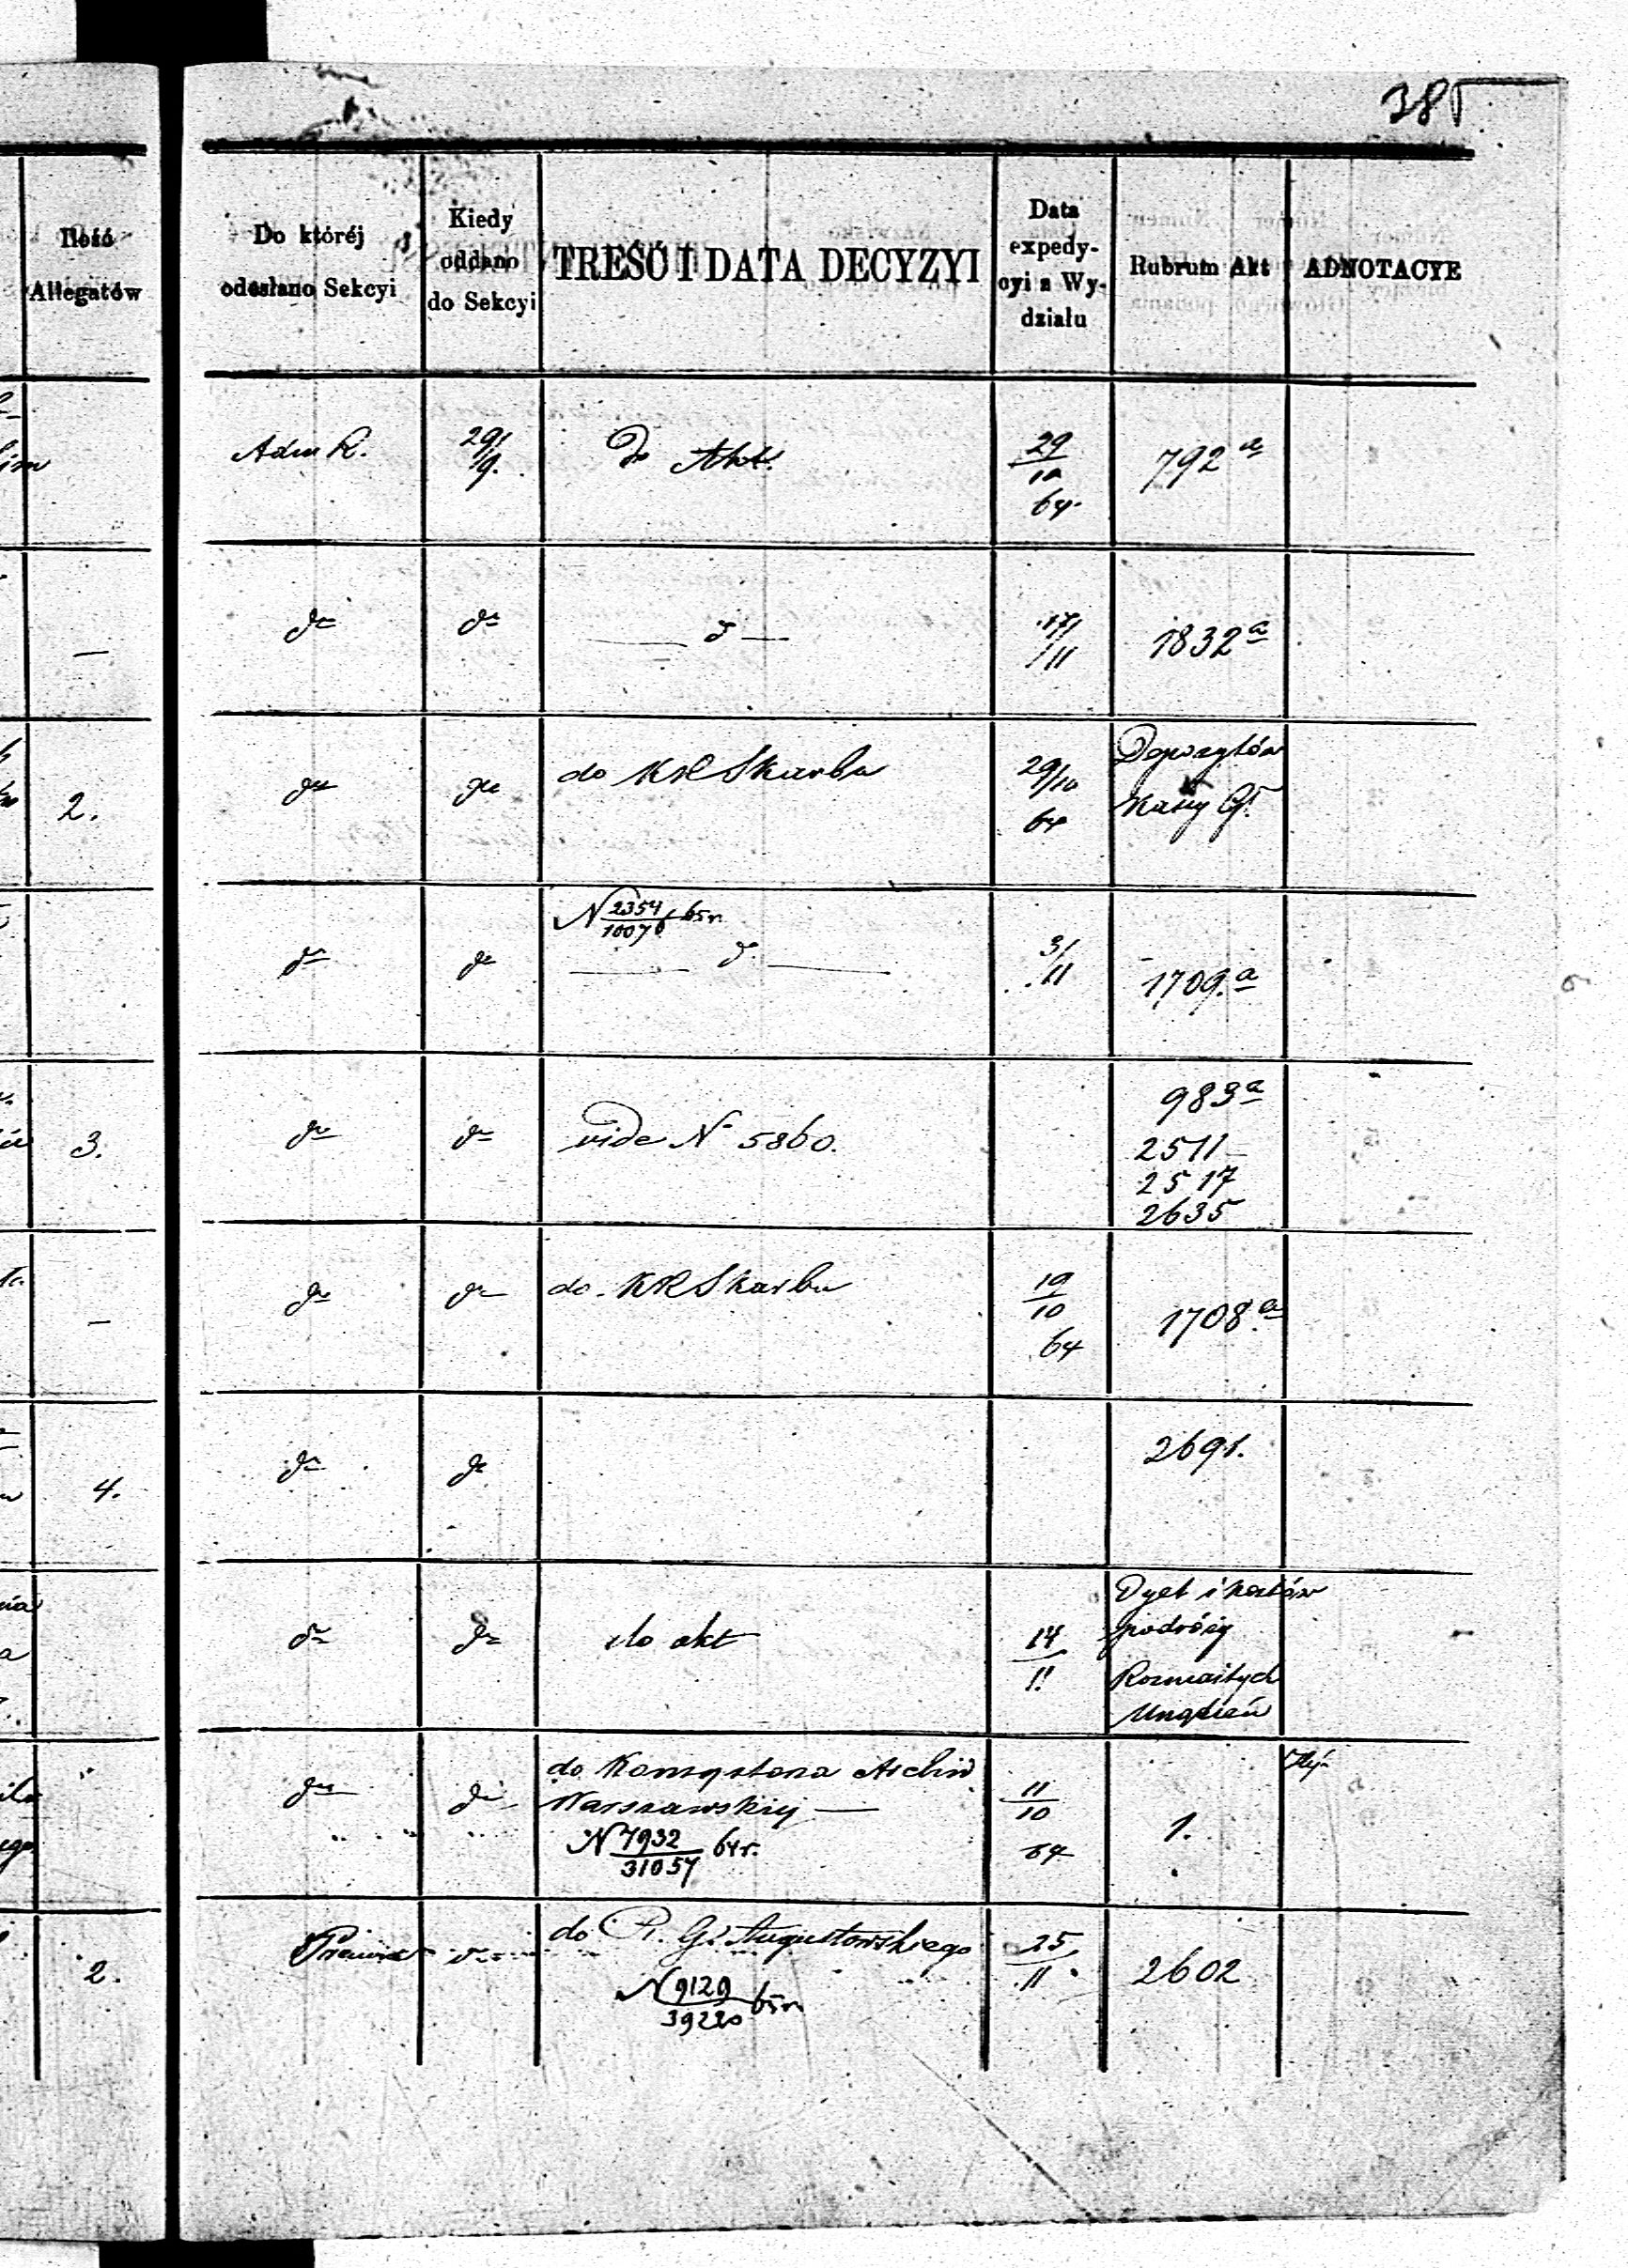 385
Ilość
Allegatów
Do któréj
odesłano Sekcyi
Kiedy
oddano
do Sekcyi
TREŚĆ I DATA DECYZYI
Data
expedy-
cyi z Wy-
działu
Rubrum Akt
ADNOTACYE
Adm R.
29/9.
Do Akt.
29/10
64.
792 a
—
do
do
— d —
17/11
1832 a
2.
do
do
do KR Skarbu
29/10
64
Depozytów
Kassy Gł.
do
do
N 2354/10076 65 r.
— d. —
3/11
1709. a
3.
do
do
vide N 5860.
983 a
2511 —
2517
2635
—
do
do
do KR Skarbu
19/10
64
1708. a
4.
do
do
2691.
do
do
do akt
14/11
Dyet i kosztów
podróży
Rozmaitych
Urządzeń
do
do
do Konsystorza Archid
Warszawskiej —
N 7932/31057 64 r.
11/10
64
1.
2.
Prawna
do
do R. G. Augustowskiego
N 9129/39220 65 r.
25/11
2602